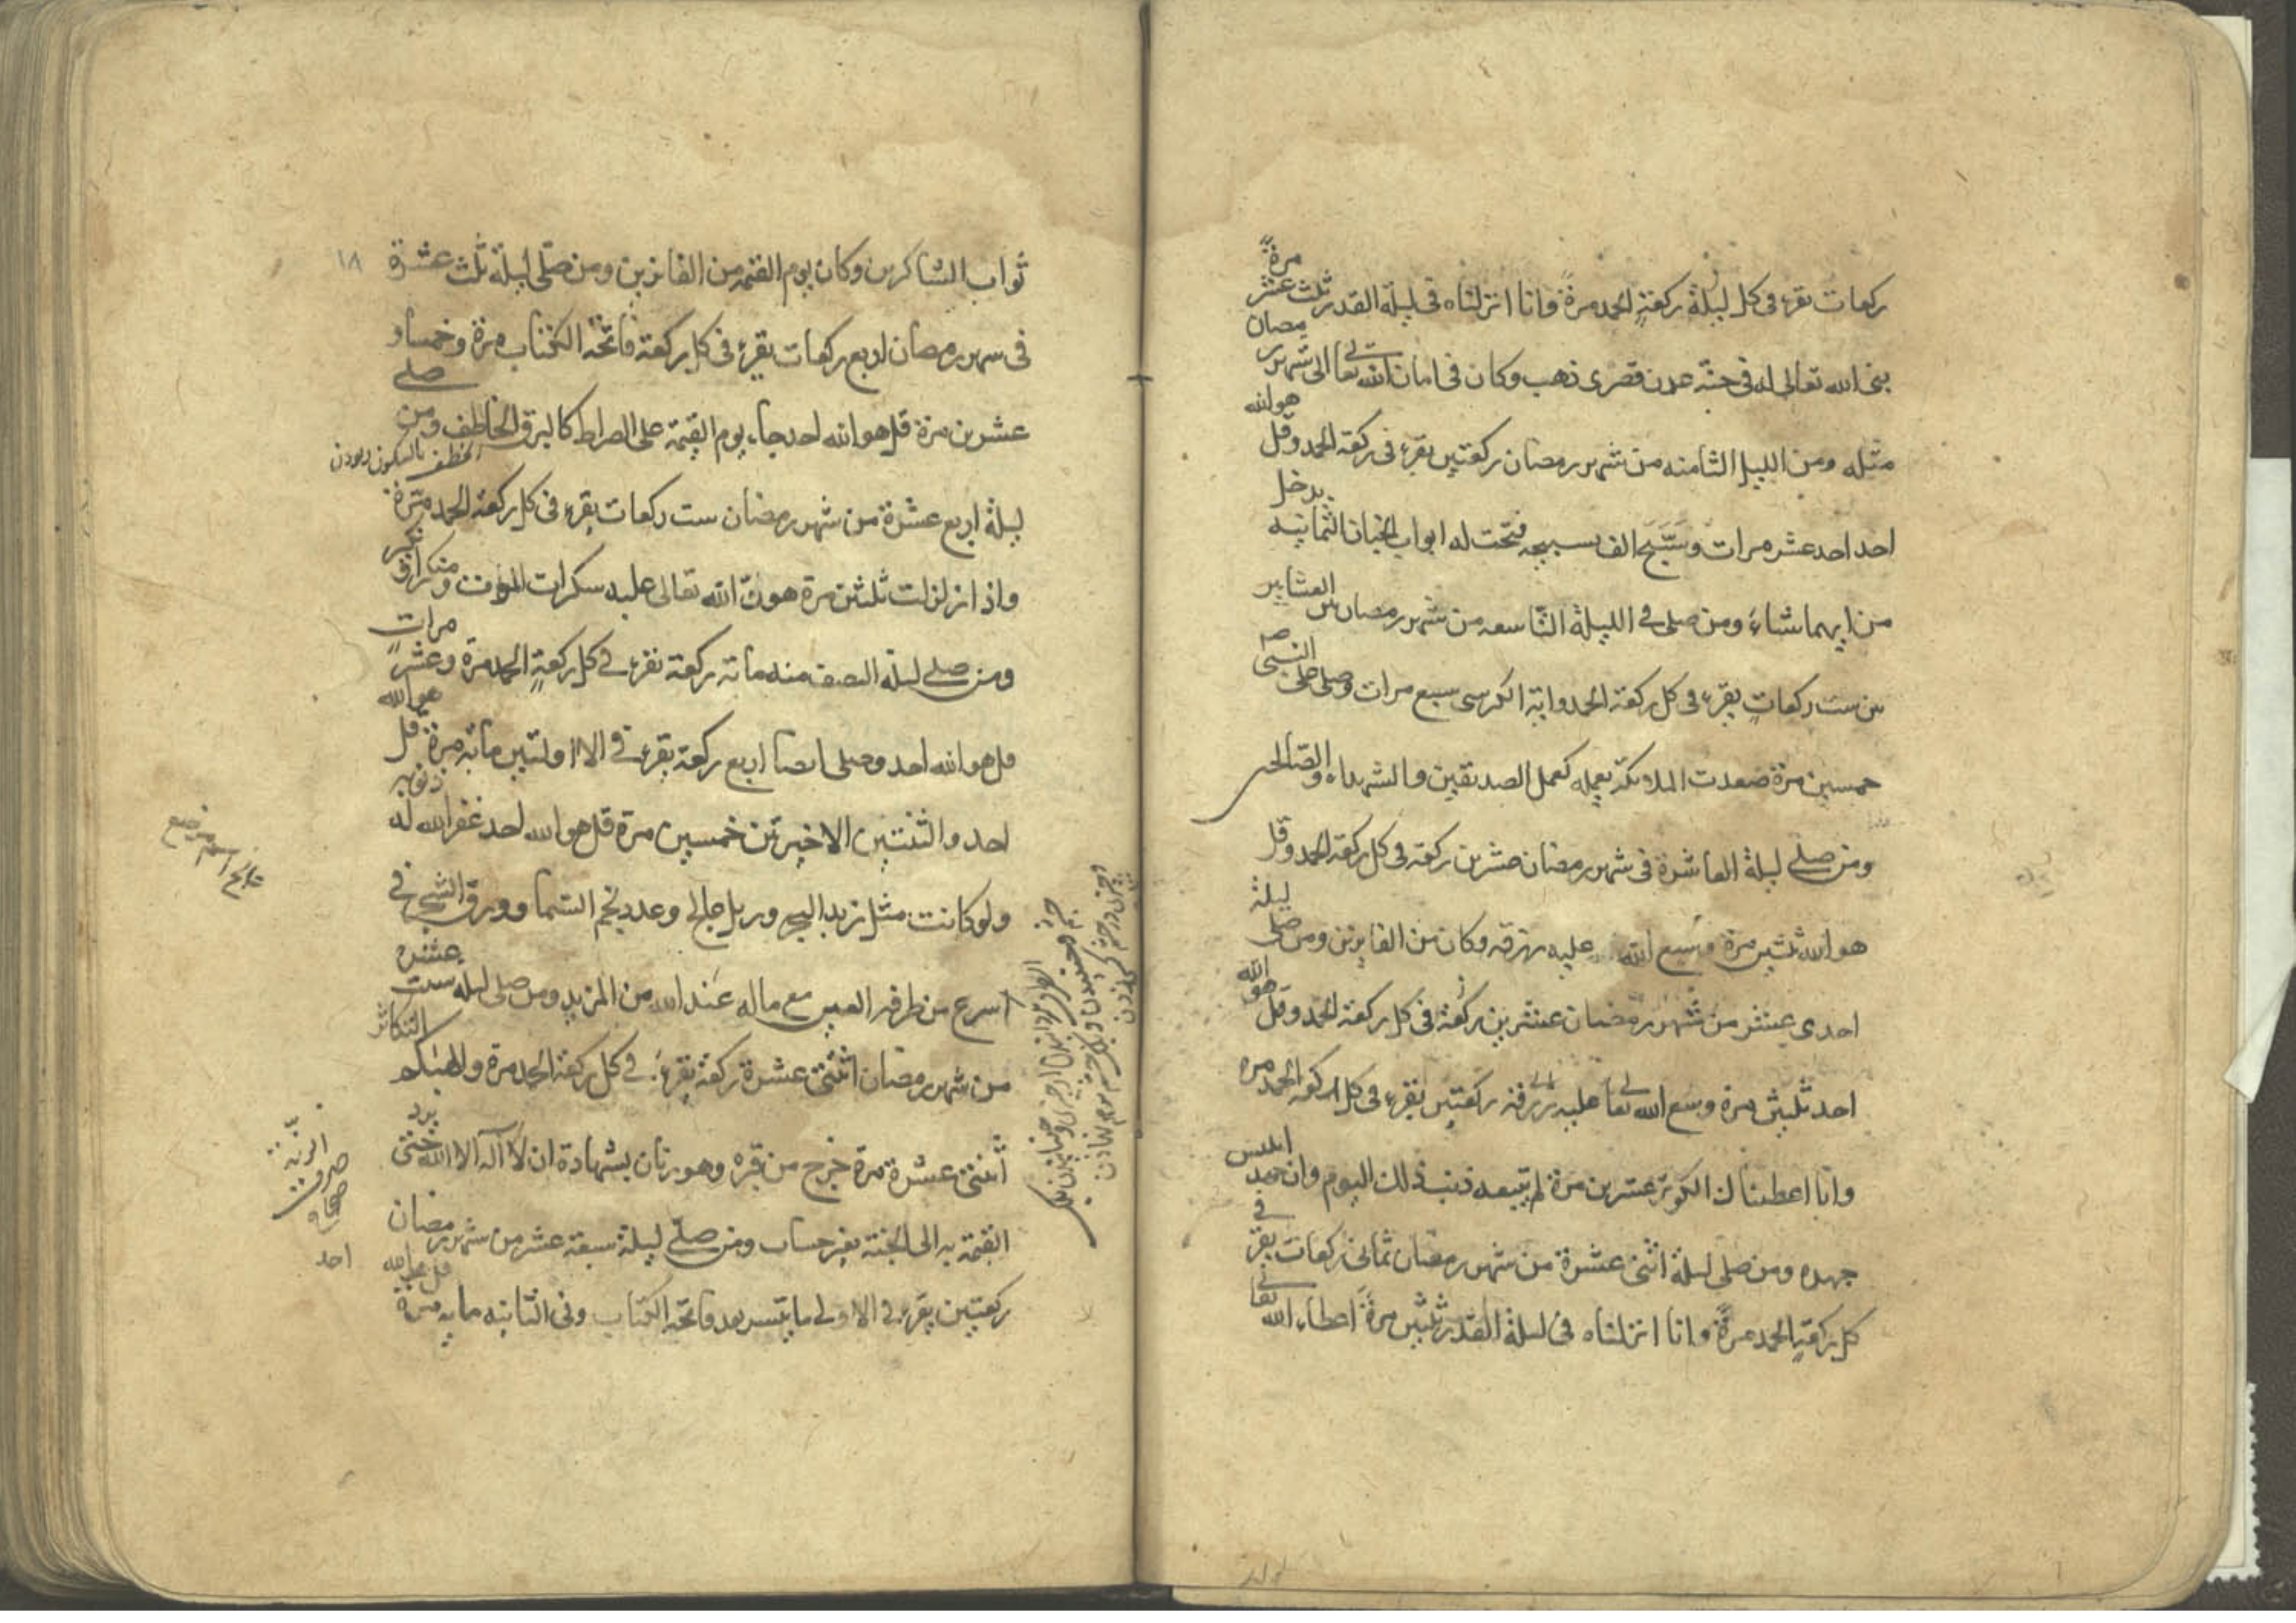 ركعات يقرء فى كل ليلة ركعة الحمد مرة وانا انزلناه فى ليلة القدر ثلث عشر مرة
بنى الله تعالى له فى جنة عدن قصرى ذهب وكان فى امان الله تعالى الى شهر رمضان
مثله ومن الليل الثامنه من شهر رمضان ركعتين يقرء فى ركعة الحمد وقل هو الله
احد احد عشر مرات وسَبَّحَ الف تسبيحه فتحت له ابواب الجنان الثمانيه يدخل
من ايهما شاء ومن صلى فى الليلة التاسعه من شهر رمضان بين العشاير
ين ست ركعات يقرء فى كل ركعة الحمد واية الكرسى سبع مرات وصلى على النبى ص
خمسين مرة صعدت الملائكة بعمله كعمل الصديقين والشهداء والصالحين
ومن صلے ليلة العاشرة فى شهر رمضان عشرين ركعة فى كل ركعة الحمد وقل
هو الله ثلثين مرة وسع الله عليه رزقه وكان من الفايزين ومن صلى ليلة
احدى عشر من شهر رمضان عشرين ركعة فى كل ركعة الحمد وقل هو الله
احد ثلثين مرة وسع الله تعالى عليه رزقه ركعتين يقرء فى كل ركعة الحمد مره
وانا اعطيناك الكوثر عشرين مرة لم يتبعه ذنب ذلك اليوم وان جهد ابليس
جهده ومن صلى ليلة اثنى عشرة من شهر رمضان ثمانى ركعات يقرء فى
كل ركعة الحمد مرة وانا انزلناه فى ليلة القدر ثلثين مرة اعطاء الله تعالى
١٨
ثواب الشاكرين وكان يوم القيمه من الفائزين ومن صلى ليلة ثلث عشرة
فى شهر رمضان اربع ركعات يقرء فى كل ركعة فاتحة الكتاب مرة وخمسا و
عشرين مرة قل هو الله احد جاء يوم القيمة على الصراط كالبرق الخاطف ومن صلے
الخطف بالسكون ربودن
ليلة اربع عشرة من شهر رمضان ست ركعات يقرء فى كل ركعة الحمد مرة
واذا زلزلت ثلثين مرة هون الله تعالى عليه سكرات الموت ومنكرا ونكير
ومن صلے ليلة النصف منه مائة ركعة يقرء فى كل ركعة الحمد مرة وعشر مرات
قل هو الله احد وصلى ايضا اربع ركعة يقرء فى الاولتين مائة مرة قل هو الله
احد والثنتين الاخيرتين خمسين مرة قل هو الله احد غفر الله له ذنوبه
ولو كانت مثل زبد البحر ورمل عالج وعدد نجم السما وورق الشجر فى
اسرع من طرفه العين مع ماله عند الله من المزيد ومن صلى ليلة ست عشره
من شهر رمضان اثنتى عشرة ركعة يقرء فى كل ركعة الحمد مرة والهيكم التكاثر
اثنتى عشرة مرة خرج من قبره وهو ريان بشهادة ان لا اله الا الله حتى يرد
القيمة به الى الجنة بغير حساب ومن صلے ليلة سبعة عشر من شهر رمضان
ركعتين يقرء فى الاولى ما تيسر بعد فاتحة الكتاب وفى الثانيه مايه مرة قل هو الله
احد
عالج اسم موضع